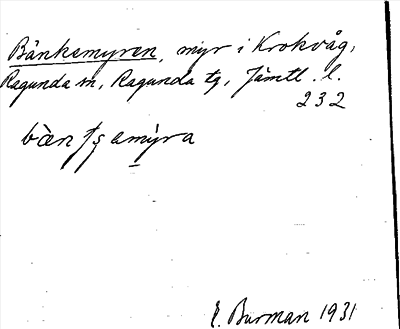 Bänkemyren, myr i Krokvåg,
Ragunda sn, Ragunda tg, Jämtl. l.
232
bæ̀n tʃ amy̠ra
E. Burman 1931